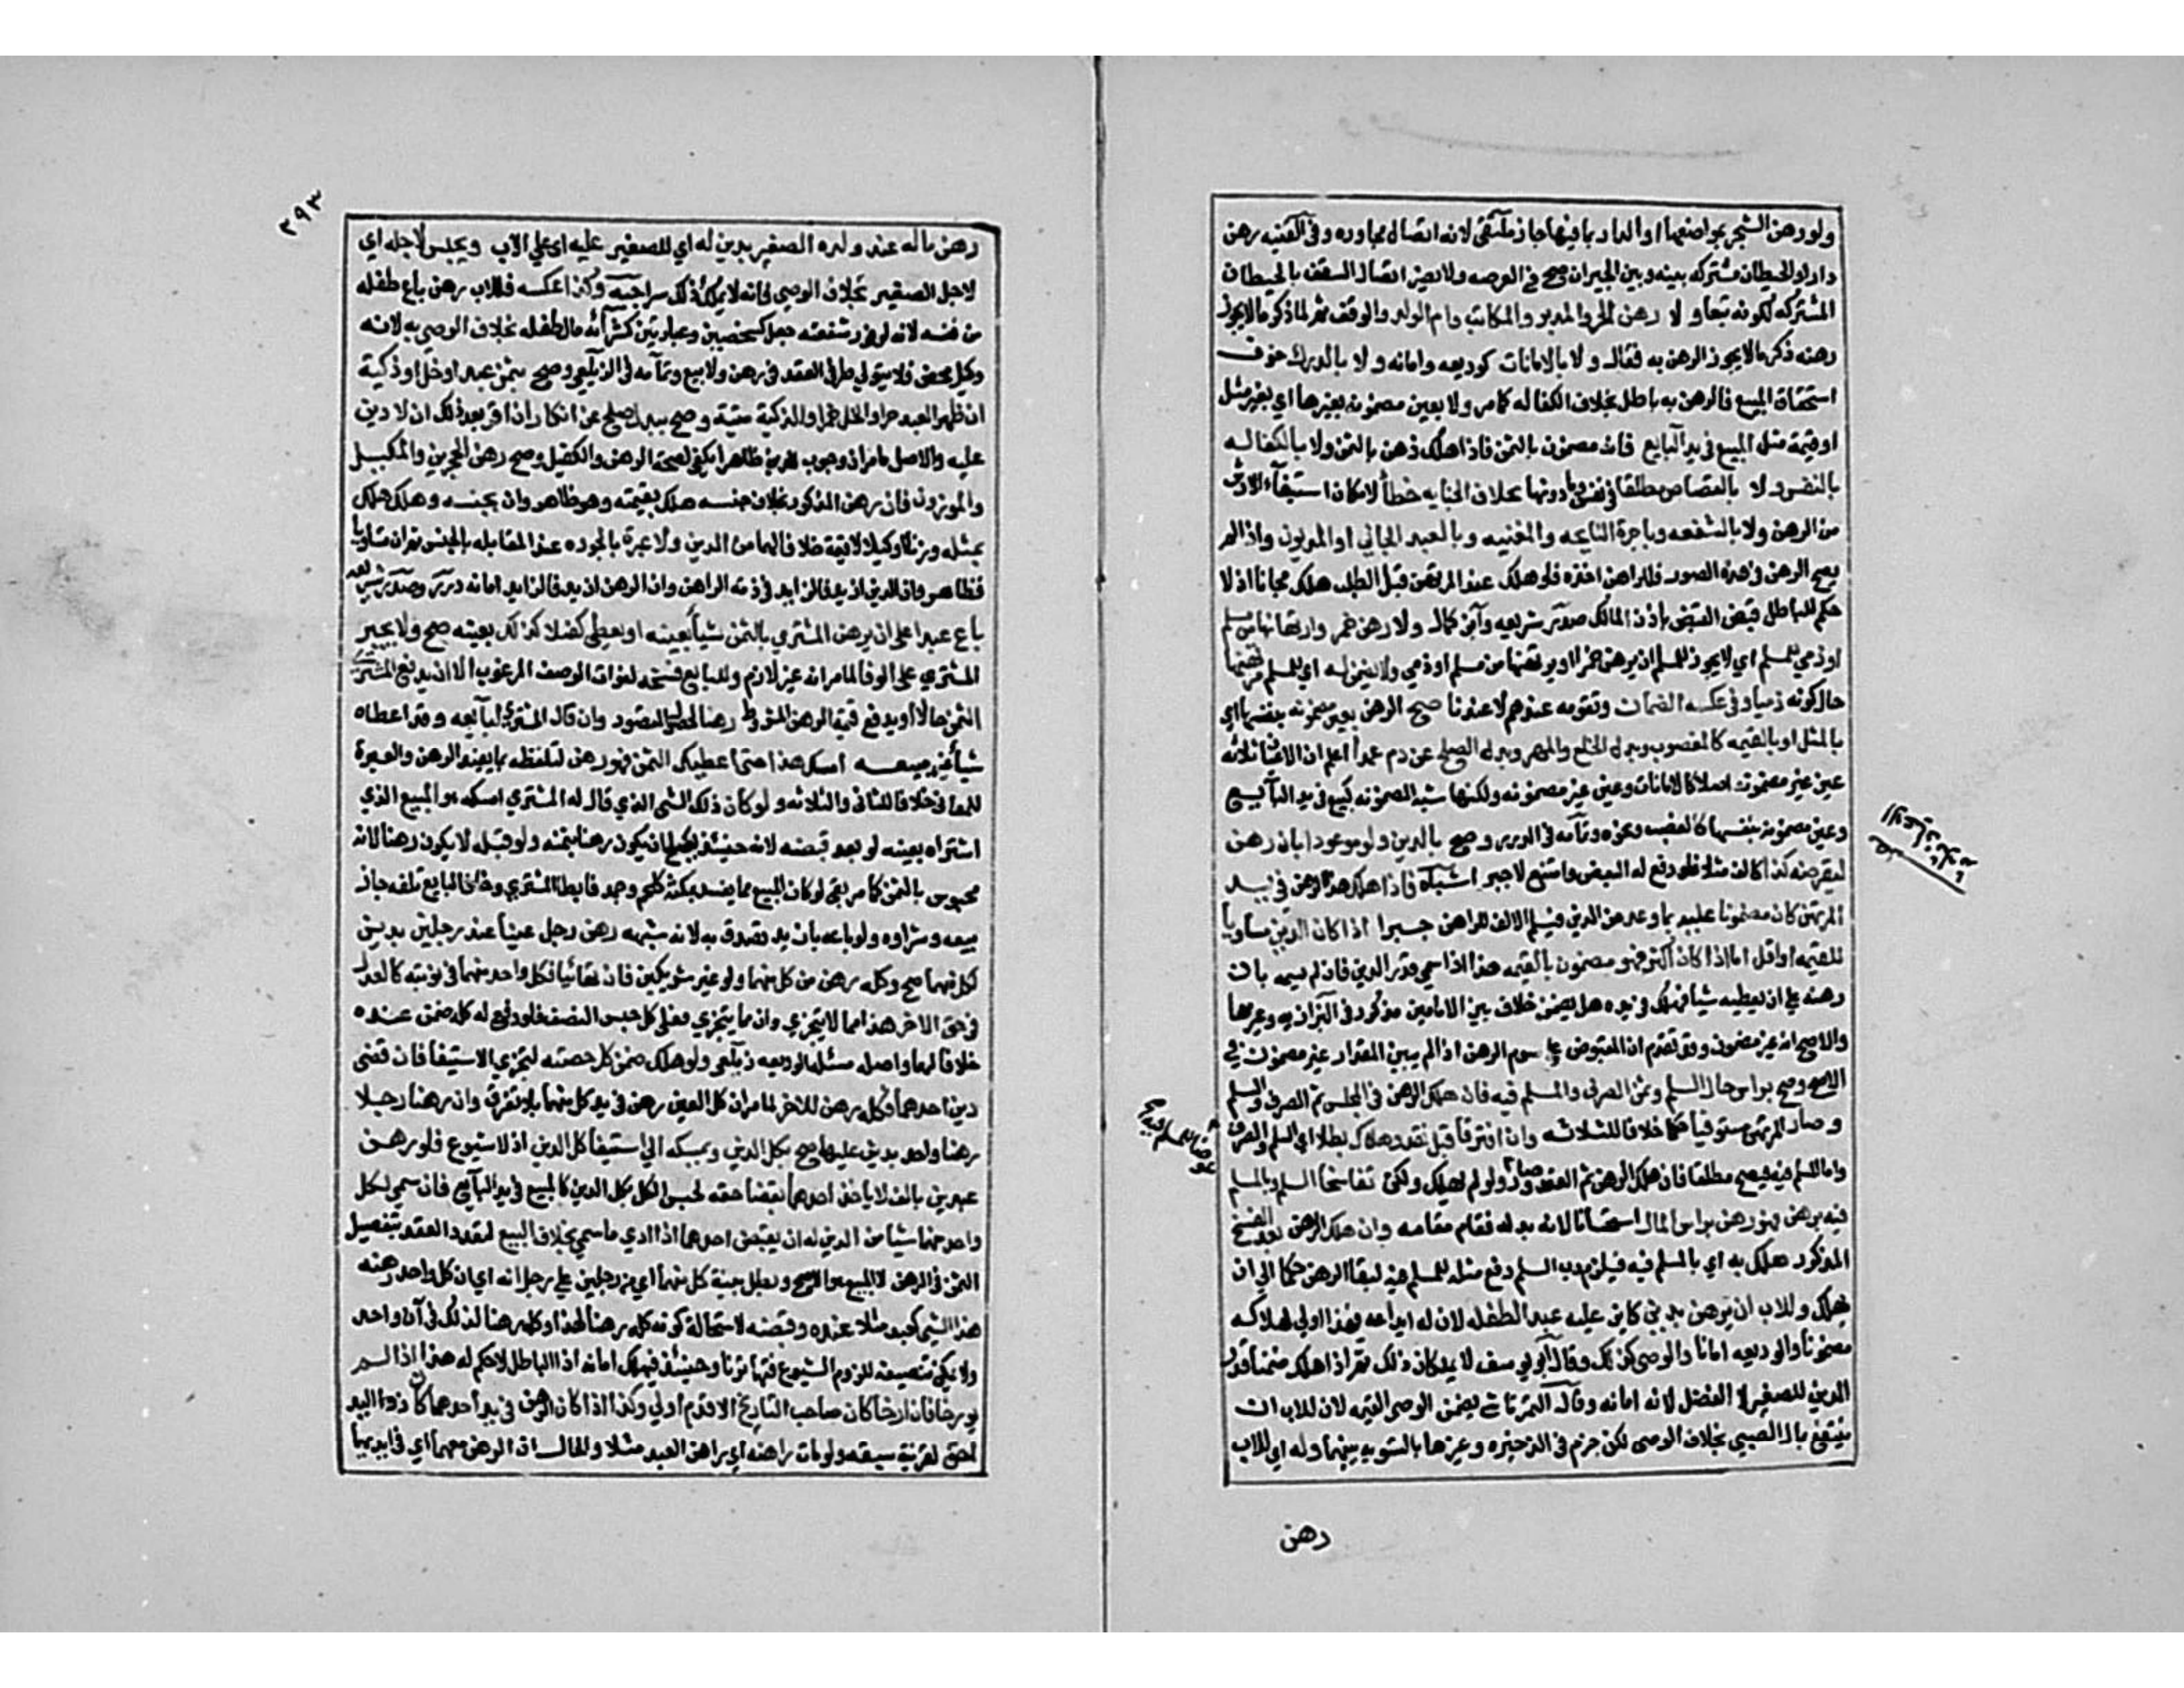 ولو رهن الشجر بمواضعها او الدار بما فيها جاز ملتقى لانه اتصال مجاوره وفي القنيه رهن
دارا والحيطان مشتركه بينه وبين الجيران صح في العرصه ولا يضر اتصال السقف بالحيطان
المشتركه لكونه تبعا ولا رهن الحر والمدبر والمكاتب وام الولد والوقف ثم لما ذكر ما لا يجوز
رهنه ذكر ما لا يجوز الرهن به فقال ولا بالامانات كوديعه وامانه ولا بالدرك خوف
استحقاق المبيع فالرهن به باطل بخلاف الكفاله كما مر ولا بعين مضمونه بغيرها اي بغير مثل
او قيمة مثل المبيع في يد البايع فانه مضمون بالثمن فاذا هلك ذهن بالثمن ولا بالكفاله
بالنفس ولا بالقصاص مطلقا في نفس وما دونها بخلاف الجنايه خطأ لامكان استيفآء الارش
من الرهن ولا بالشفعه وباجرة النايحه والمغنيه وبالعبد الجاني او المديون واذا لم
يصح الرهن في هذه الصور فللراهن اخذه فلو هلك عند المرتهن قبل الطلب هلك مجانا اذ لا
حكم للباطل فبقى القبض باذن المالك صدر شريعه وابن كمال ولا رهن خمر وارتهانها من مسلم
او ذمي للمسلم اي لا يجوز للمسلم ان يرهن خمرا او يرتهنها من مسلم او ذمي ولا يضمن له اي للمسلم مرتهنها
حال كونه ذميا وفي عكسه الضمان وتقومه عندهم لا عندنا صح الرهن بعين مضمونه بنفسها اي
بالمثل او بالقيمه كالمغصوب وبدل الخلع والمهر وبدل الصلح عن دم عمدا اعلم ان الاعيان ثلاثه
عين غير مضمونه اصلا كالامانات وعين غير مضمونه ولكنها تشبه المضمونه كمبيع في يد البآيع
وعين مضمونه بنفسها كالمغصب ونحوه وتمامه في الدرر وصح بالدين ولو موعودا بان رهن
ليقرضه كذا كالف مثلا فلو دفع له البعض وامتنع لا جبر اشباه فاذا هلك هذا الرهن في يد
المرتهن كان مضمونا عليه بما وعد من الدين فيسلم الالف للراهن جبرا اذا كان الدين مساويا
للقيمه او اقل اما اذا كان اكثر فهو مضمون بالقيمه هذا اذا سمي قدر الدين فان لم يسمه بان
رهنه على ان يعطيه شيا فهلك في يده هل يضمن خلاف بين الامامين مذكور في البزازيه وغيرها
والاصح انه غير مضمون وقد تقدم ان المقبوض على سوم الرهن اذا لم يبين المقدار غير مضمون في
الاصح وصح براس مال السلم وثمن الصرف والمسلم فيه فان هلك الرهن في المجلس تم الصرف والسلم
وصار المرتهن مستوفيا حكما خلافا للثلاثه وان افترقا قبل نقد وهلاك بطلا اي السلم والصرف
واما المسلم فيه فيصح مطلقا فان هلك الرهن تم العقد وصار ولو لم يهلك ولكن تفاسخا السلم وبالمسلم
فيه رهن فهو رهن براس المال استحسانا لانه بدله فقام مقامه وان هلك الرهن بعد الفسخ
المذكور هلك به اي بالمسلم فيه فيلزم رب السلم دفع مثله للمسلم اليه لبقا الرهن حكما الى ان
يهلك وللاب ان يرهن بدين كاين عليه عبدا لطفله لان له ايداعه فهذا اولى لهلاكه
مضمونا والوديعه امانا والوصي كذلك وقال ابو يوسف لا يملكان ذلك ثم اذا هلك ضمنا قدر
الدين للصغير لا الفضل لانه امانه وقال التمرتاشي يضمن الوصي القيمه لان للاب ان
ينتفع بمال الصبي بخلاف الوصي لكن جزم في الذخيره وغيرها بالتسويه بينهما وله اي للاب
رهن
٢٩٣
رهن ماله عند ولده الصغير بدين له اي للصغير عليه اي على الاب ويحبس لاجله اي
لاجل الصغير بخلاف الوصي فانه لا يملك ذلك سراجيه وكذا عكسه فللاب رهن متاع طفله
من نفسه لانه لوفور شفقته جعل كشخصين وعبارتين كشرآئه مال طفله بخلاف الوصي به لانه
وكيل محض فلا يتولى طرفى العقد في رهن ولا بيع وتمامه في الزيلعي وصح بثمن عبد او خل او ذكية
ان ظهر العبد حرا والخل خمرا والذكية ميتة وصح ببدل صلح عن انكار ان اقر بعد ذلك ان لا دين
عليه والاصل ما مر ان وجوب الدين ظاهرا يكفي لصحة الرهن والكفيل وصح رهن الحجرين والمكيل
والموزون فان رهن المذكور بخلاف جنسه هلك بقيمته وهو ظاهر وان بجنسه وهلك هلك
بمثله وزنا او كيلا لا قيمة خلافا لهما من الدين ولا عبرة بالجوده عند المقابله بالجنس ثم ان تساويا
فظاهر وان الدين ازيد فالزايد في ذمة الراهن وان الرهن ازيد فالزايد امانه درر وصدر شريعه
باع عبدا على ان يرهن المشتري بالثمن شيأ بعينه او يعطي كفيلا كذلك بعينه صح ولا يجبر
المشتري على الوفا لما مر انه غير لازم وللبايع فسخه لفوات الوصف المرغوب الا ان يدفع المشتري
الثمن حالا او يدفع قيمة الرهن المشروط رهنا لحصول المقصود وان قال المشتري لبآيعه وقد اعطاه
شيأ غير مبيعه امسك هذا حتى اعطيك الثمن فهو رهن لتلفظه بما يفيد الرهن والعبرة
للمعاني خلافا للثاني والثلاثه ولو كان ذلك الشي الذي قال له المشتري امسكه هو المبيع الذي
اشتراه بعينه لو بعد قبضه لانه حينئذ يصلح ان يكون رهنا بثمنه ولو قبله لا يكون رهنا لانه
محبوس بالثمن كما مر بقى لو كان المبيع مما يفسد بمكثه كلحم وجمد فابطا المشتري وخاف البايع تلفه جاز
بيعه وشراوه ولو باعه بازيد تصدق به لانه شبهه رهن رجل عينا عند رجلين بدين
لكل منهما صح وكله رهن من كل منهما ولو غير شريكين فان تهائيا فكل واحد منهما في نوبته كالعدل
في حق الاخر هذا مما لا يتجزي وان مما يتجزي فعلى كل حبس النصف فلو دفع له كله ضمن عنده
خلافا لهما واصله مسئلة الوديعه زيلعي ولو هلك ضمن كل حصته لتجزي الاستيفا فان قضى
دين احدهما فكله رهن للاخر لما مر ان كل العين رهن في يد كل منهما بلا تفرق وان رهنا رجلا
رهنا واحدا بدين عليهما صح بكل الدين ويمسكه الي استيفا كل الدين اذ لا شيوع فلو رهن
عبدين بالف لا ياخذ احدهما بقضا حصته لحبس الكل بكل الدين كالمبيع في يد البآيع فان سمي لكل
واحد منهما شيا من الدين له ان يقبض احدهما اذا ادي ما سمي بخلاف البيع لتعدد العقد بتفصيل
الثمن في الرهن لا البيع هو الاصح وبطل بينة كل منهما اي من رجلين على رجل انه اي ان كل واحد رهنه
هذا الشي كعبد مثلا عنده وقبضه لاستحالة كونه كله رهنا لهذا وكله رهنا لذلك في آن واحد
ولا يمكن تنصيفه للزوم الشيوع فتهاترتا وحينئذ فيهلك امانه اذ الباطل لا حكم له هذا اذا لم
يورخا فان ارخا كان صاحب التاريخ الاقدم اولي وكذا اذا كان الرهن في يد احدهما كان ذو اليد
احق لقرينة سبقه ولو مات راهنه اي راهن العبد مثلا والحال ان الرهن معهما اي في ايديهما